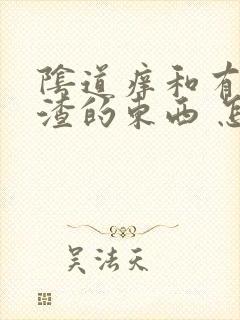 陰道痒和有
渣的东西 怎
吴法天